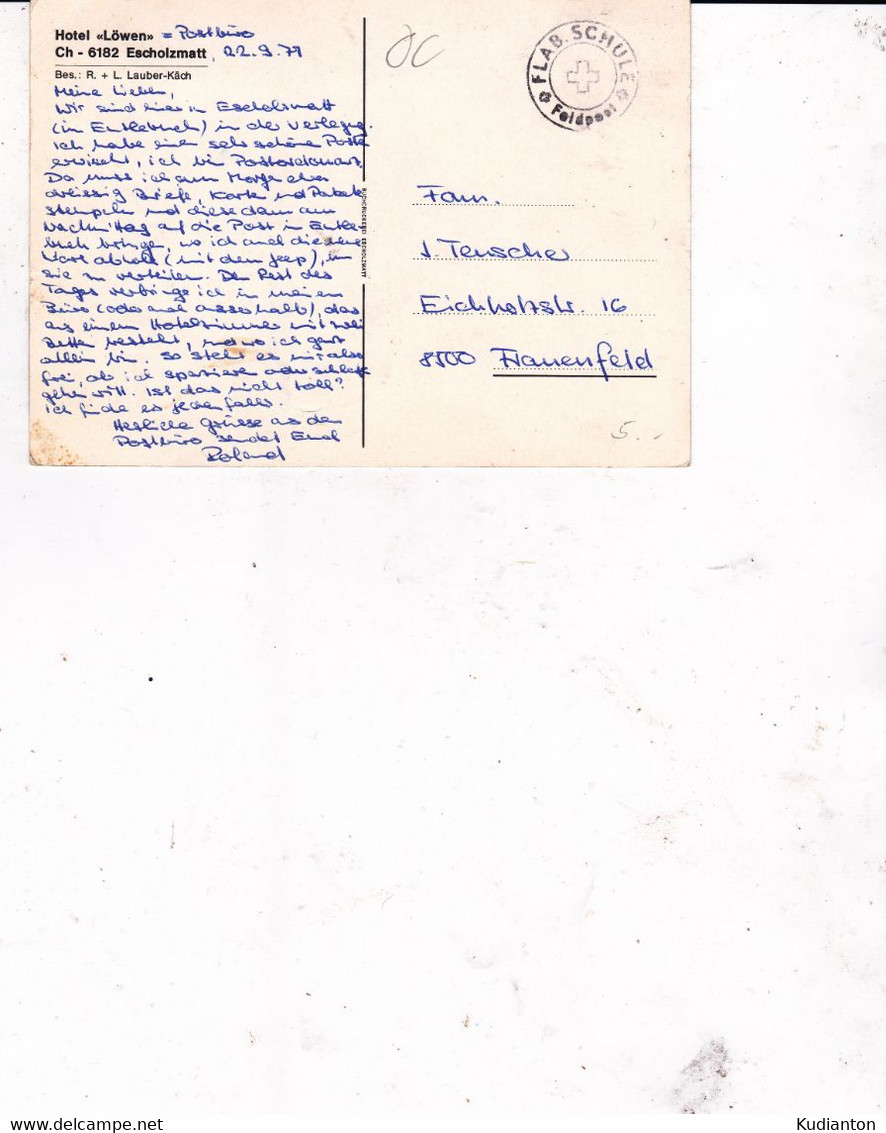 Hotel «Löwen» = Postbüro
Ch - 6182 Escholzmatt, 22.9.79
Bes.: R. + L. Lauber-Käch
Meine Lieben,
Wir sind hier in Escholzmatt
(im Entlebuch) in der Verlegung.
Ich habe einen sehr schöne Posten
erwischt, ich bin Postordonnanz.
Da muss ich am Morge etwa
dreissig Briefe, Karte und Pakete
stempeln und diese dann am
Nachmittag auf die Post in Entle-
buch bringen, wo ich auch die neue
Ware abhole (mit dem Jeep), um
sie zu verteilen. Den Rest des
Tages verbringe ich in meinem
Büro (oder auch ausserhalb), das
aus einem Hotelzimmer mit zwei
Betten besteht, und wo ich ganz
allein bin. So steht es mir also
frei, ob ich spazieren oder schlafe
gehen will. Ist das nicht toll?
Ich finde es jedenfalls.
Herzliche Grüsse aus dem
Postbüro sendet Euch
Roland
BUCHDRUCKEREI ESCHOLZMATT
FLAB. SCHULE
Feldpost
Fam.
J. Teuscher
Eichholzstr. 16
8500 Frauenfeld
5.-
Kudianton